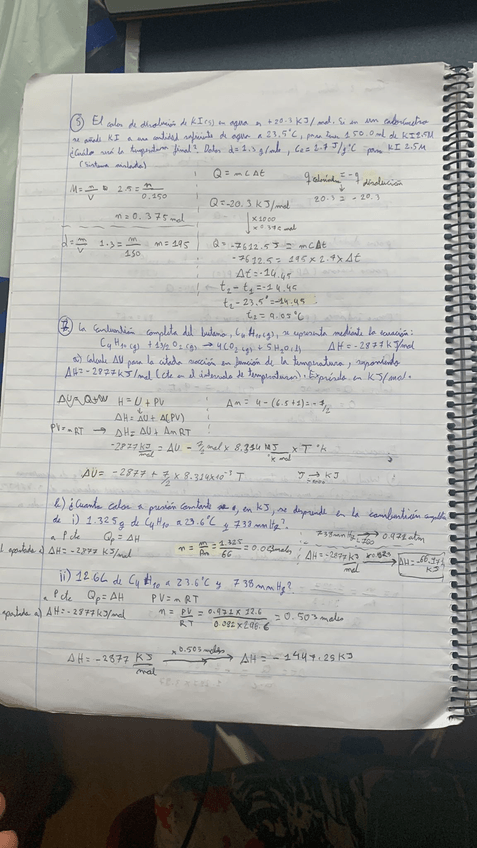 ⑤ El calor de disolución de KI(s) en agua es +20.3 KJ/mol. Si en un calorímetro
se añade KI a una cantidad suficiente de agua a 23.5°C, para tener 150.0 ml de KI 2.5M
¿Cuál será la temperatura final? Datos d=1.3 g/ml, Ce=2.7 J/g°C para KI 2.5M
(Sistema aislado)
M = n/V 2.5 = n/0.150
n = 0.375 mol
d = m/V 1.3 = m/150 m = 195
Q = m C Δt
Q = -20.3 KJ/mol
x1000
x 0.375 mol
Q = -7612.5 J = m C Δt
-7612.5 = 195 x 2.7 x Δt
Δt = -14.45
t2 - t1 = -14.45
t2 - 23.5° = -14.45
t2 = 9.05°C
q calorim = -q disolución
20.3 = -20.3
⑦ La combustión completa del butano, C4H10(g), se representa mediante la ecuación:
C4H10(g) + 13/2 O2(g) → 4CO2(g) + 5H2O(l) ΔH = -2877 KJ/mol
a) Calcule ΔU para la citada reacción en función de la temperatura, suponiendo
ΔH = -2877 KJ/mol (cte en el intervalo de temperaturas). Expréselo en KJ/mol.
ΔU = Q + W H = U + PV
ΔH = ΔU + Δ(PV)
PV = nRT → ΔH = ΔU + ΔnRT
Δn = 4 - (6.5+1) = -7/2
-2877 KJ/mol = ΔU - 7/2 mol x 8.314 J/°K mol x T °K
ΔU = -2877 + 7/2 x 8.314x10⁻³ T
J → KJ
b) ¿Cuanto calor a presión constante, en KJ, se desprende en la combustión completa
de i) 1.325g de C4H10 a 23.6°C y 738 mmHg?
a P cte Qp = ΔH
apartado a) ΔH = -2877 KJ/mol
738 mmHg → 0.971 atm
ΔH = -2877 KJ/mol
ii) 12.6L de C4H10 a 23.6°C y 738 mmHg?
a P cte Qp = ΔH PV = nRT
apartado a) ΔH = -2877 KJ/mol
n = PV/RT = 0.971 x 12.6/0.082 x 296.6 = 0.503 moles
ΔH = -2877 KJ/mol x 0.503 moles → ΔH = -1447.25 KJ